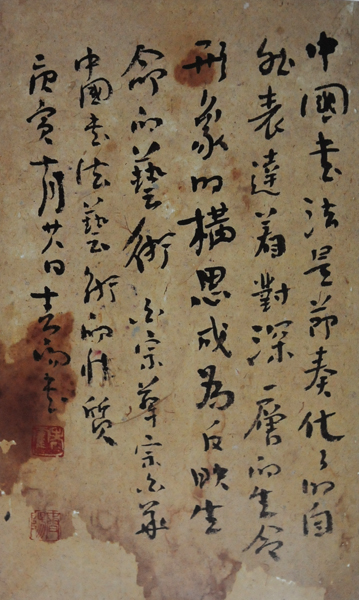 中國書法是節奏化了的自
然表達着對深一層的生命
形象的構思成為反映生
命的藝術 宗白華
中國書法藝術的性質
庚寅十月廿日 書